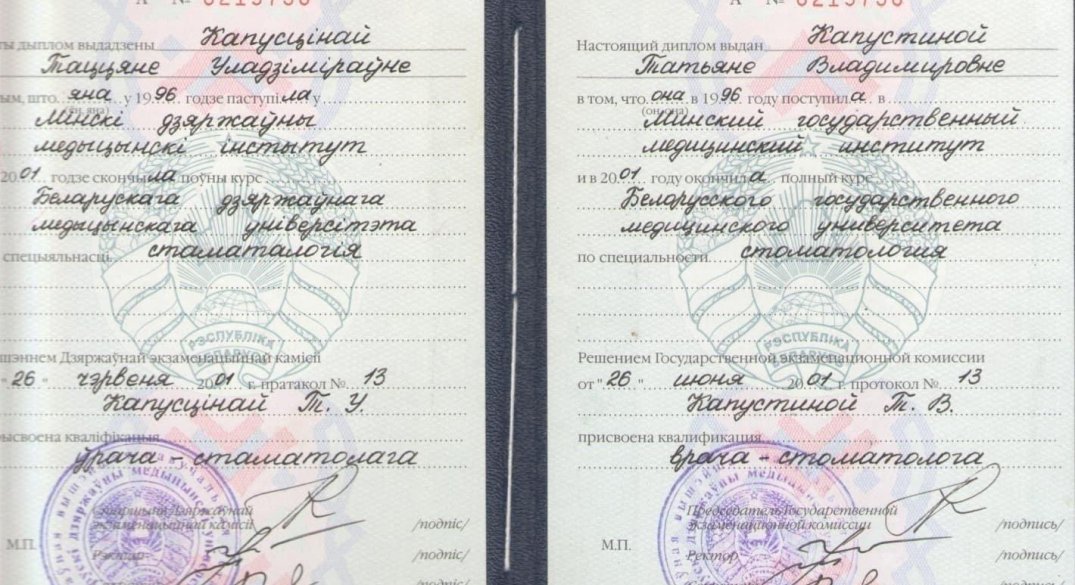 А № 0219756
ты дыплом выдадзены Капусцінай
Таццяне Уладзіміраўне
ым, што яна у 1996 годзе паступіла у
(ён, яна)
Мінскі дзяржаўны
медыцынскі інстытут
2001 годзе скончыла поўны курс
Беларускага дзяржаўнага
медыцынскага універсітэта
спецыяльнасці стаматалогія
РЭСПУБЛІКА
БЕЛАРУСЬ
шэннем Дзяржаўнай экзаменацыйнай камісіі
"26" чэрвеня 2001 г. пратакол № 13
Капусцінай Т. У.
рысвоена кваліфікацыя
ўрача - стаматолага
Старшыня Дзяржаўнай
экзаменацыйнай камісіі /подпіс/
М.П. Рэктар /подпіс/
/подпіс/
А № 0219756
Настоящий диплом выдан Капустиной
Татьяне Владимировне
в том, что она в 1996 году поступила в
(он, она)
Минский государственный
медицинский институт
и в 2001 году окончила полный курс
Белорусского государственного
медицинского университета
по специальности стоматология
РЭСПУБЛІКА
БЕЛАРУСЬ
Решением Государственной экзаменационной комиссии
от "26" июня 2001 г. протокол № 13
Капустиной Т. В.
присвоена квалификация
врача - стоматолога
Председатель Государственной
экзаменационной комиссии /подпись/
М.П. Ректор /подпись/
/подпись/